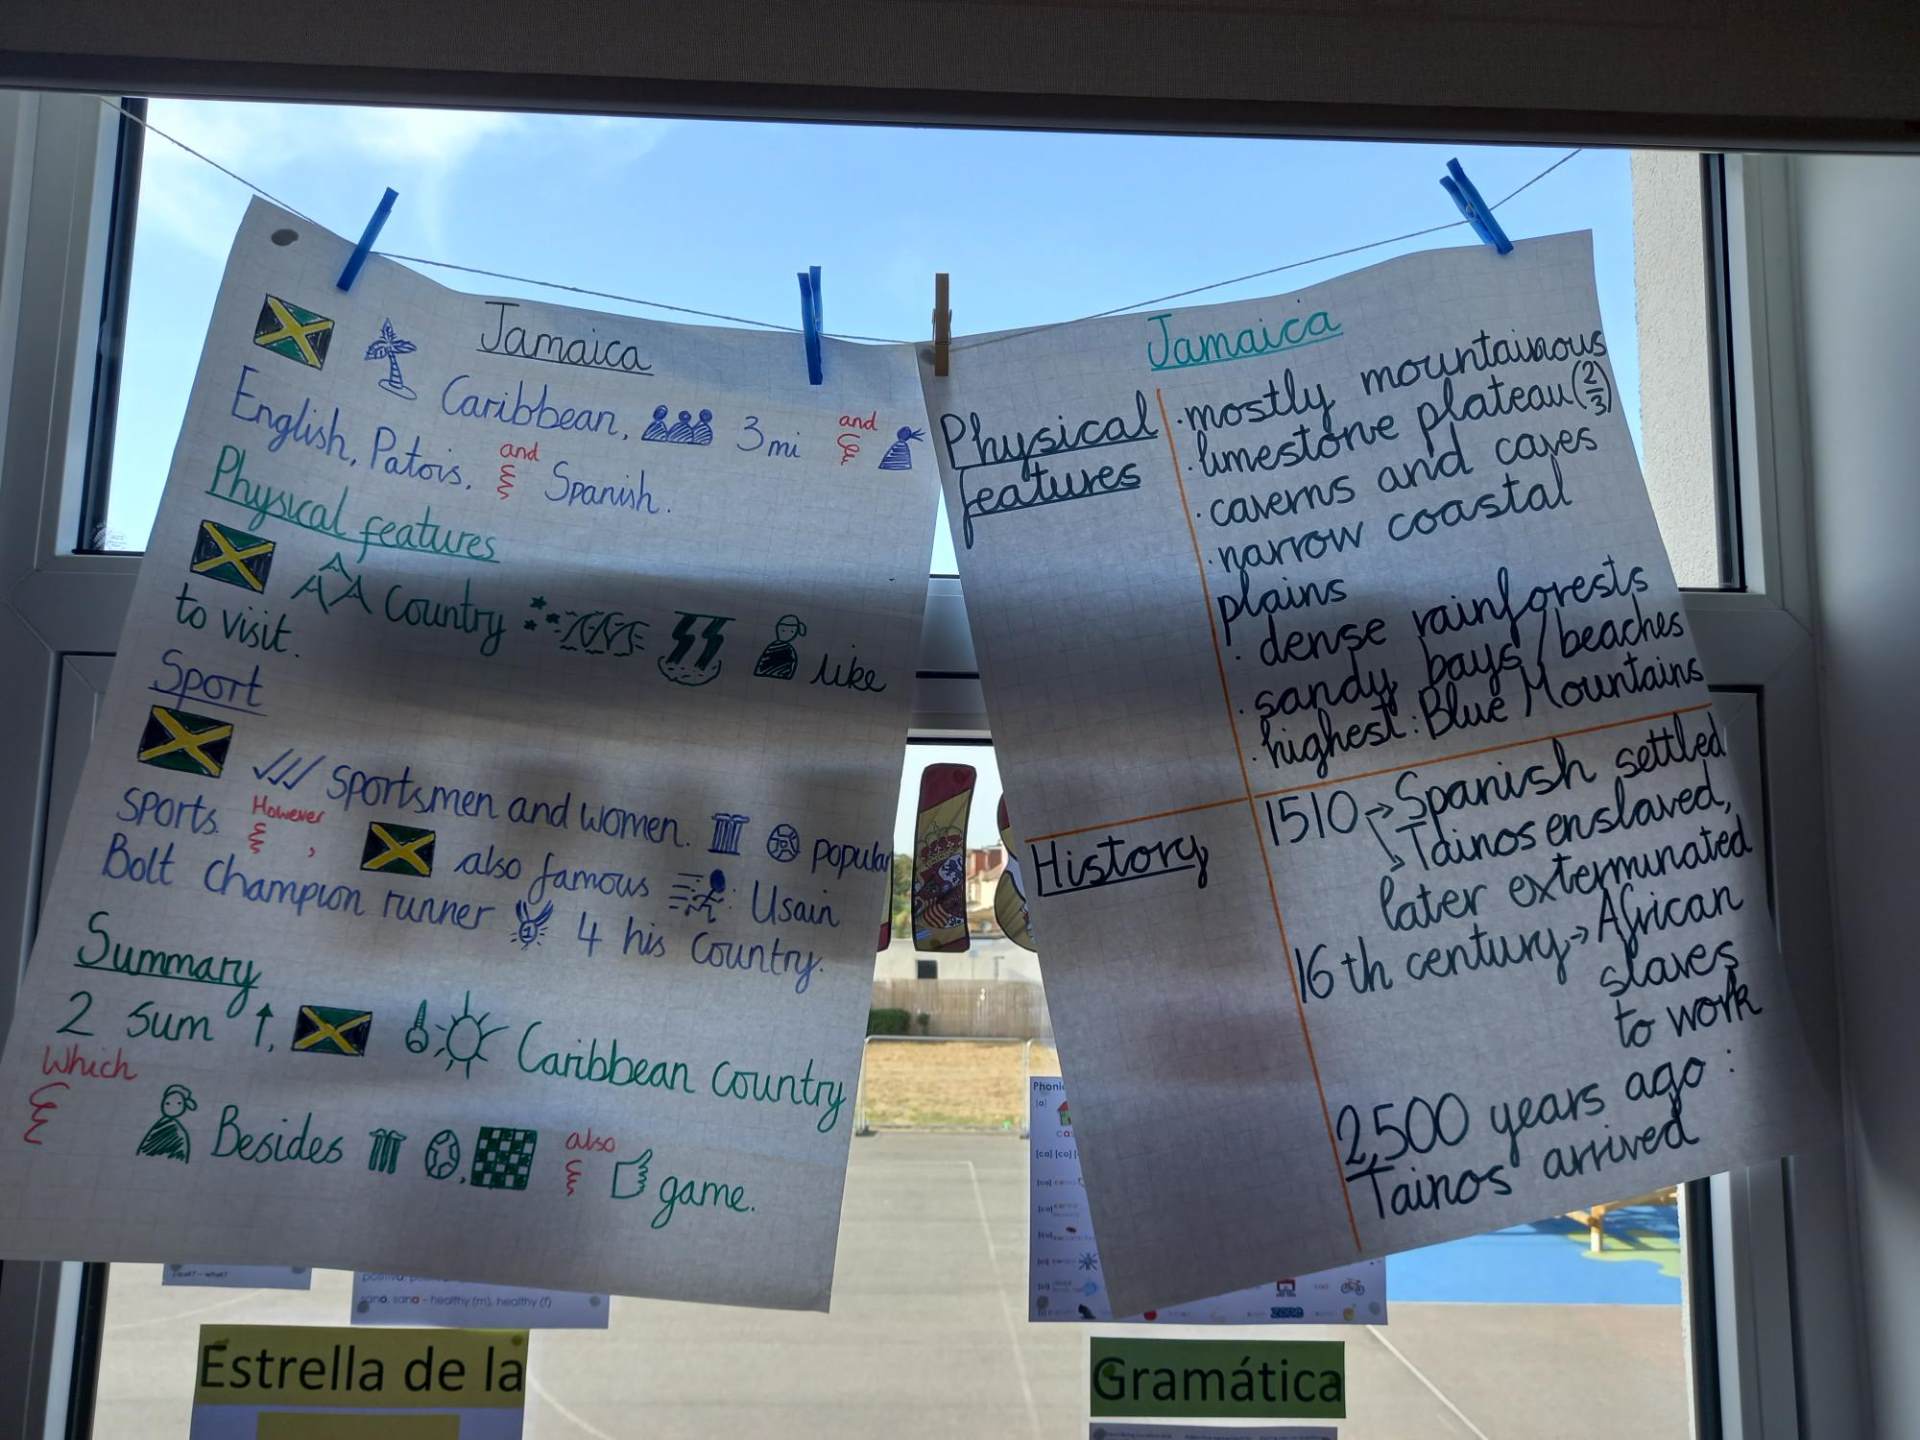 Jamaica
Caribbean, 3 mi and
English, Patois, and Spanish.
Physical features
Country like
to visit.
Sport
sportsmen and women. popular
sports. However, also famous : Usain
Bolt champion runner 1 4 his country.
Summary
2 sum ↑, Caribbean country
which
Besides , also game.
Jamaica
Physical
features
· mostly mountainous
· limestone plateau (2/3)
· caverns and caves
· narrow coastal
plains
· dense rainforests
· sandy bays / beaches
· highest: Blue Mountains
History
1510 → Spanish settled
→ Tainos enslaved,
later exterminated
16th century → African
slaves
to work
2,500 years ago :
Tainos arrived
sano, sana - healthy (m), healthy (f)
Estrella de la
Gramática